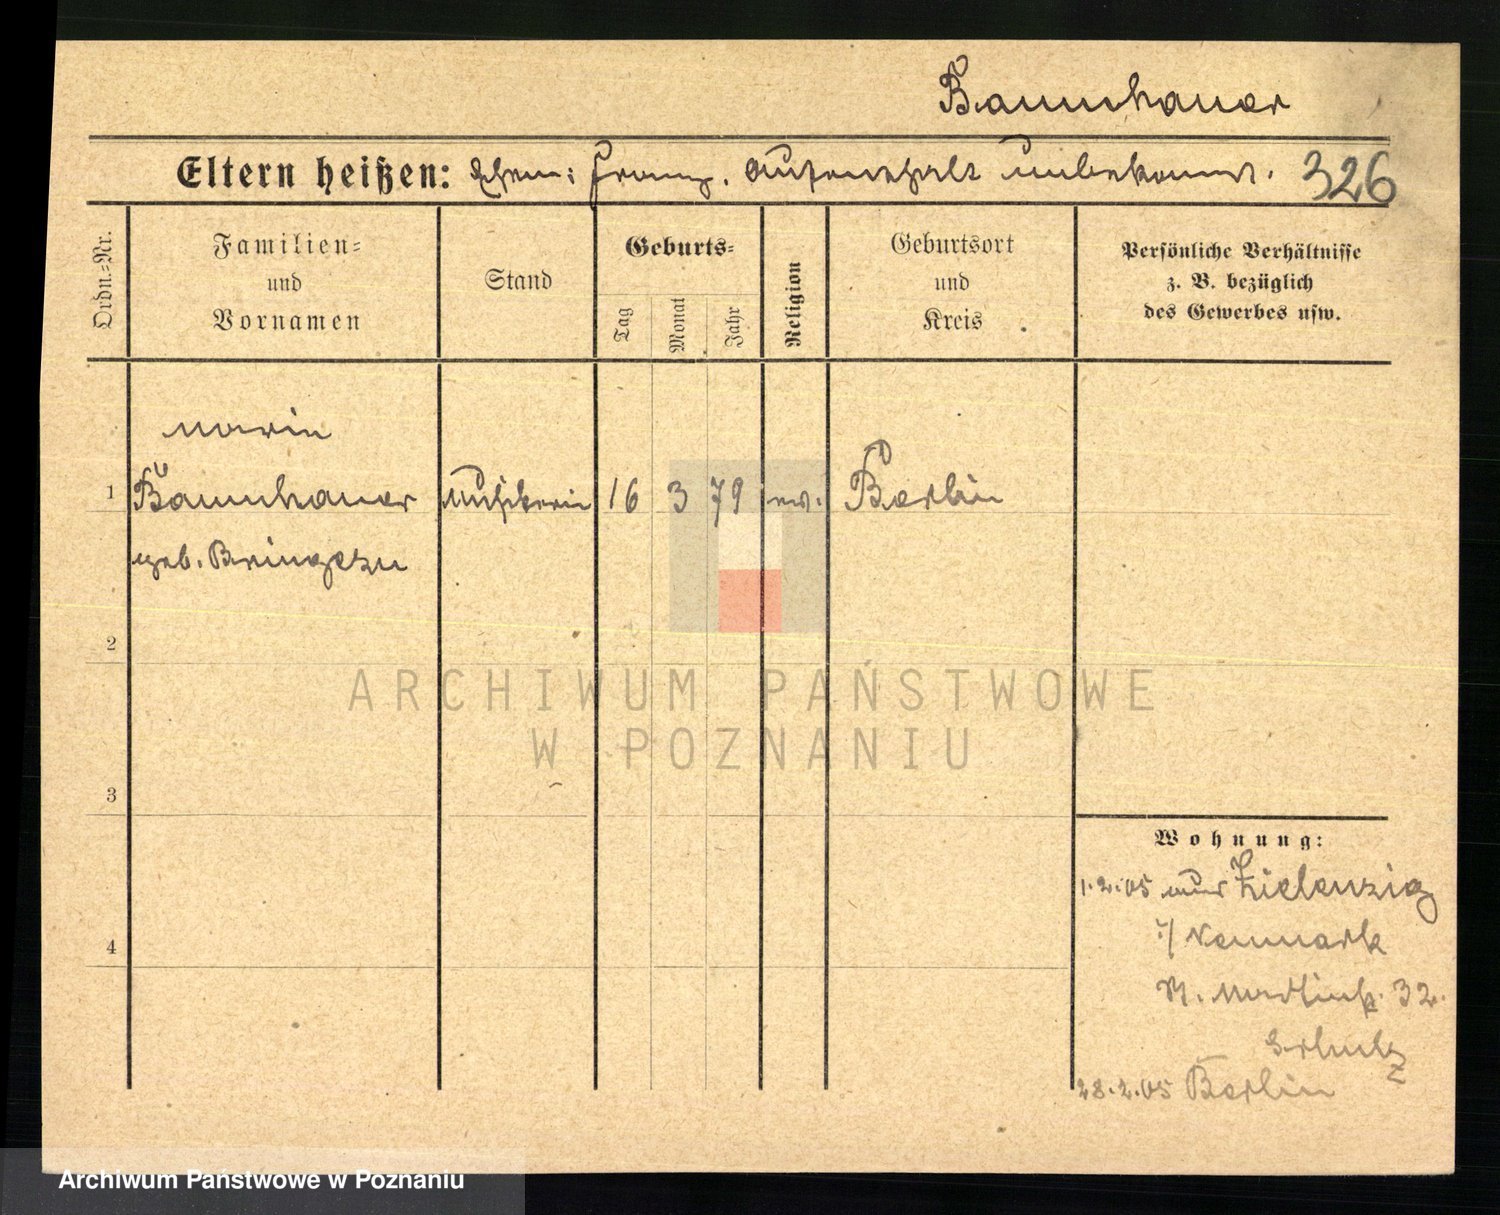 Baumhauer
Eltern heißen: Ehem: Franz. Aufenthalt unbekannt. 326
Ordn.-Nr.
Familien-
und
Vornamen
Stand
Geburts-
Tag
Monat
Jahr
Religion
Geburtsort
und
Kreis
Persönliche Verhältnisse
z. B. bezüglich
des Gewerbes usw.
Marie
1 Baumhauer Musikerin 16 3 79 ev. Berlin
geb. Bringezu
2
3
4
Wohnung:
1.2.05 aus Zielenzig
i/Neumark
St. Martinstr. 32.
Schulz
28.2.05 Berlin
ARCHIWUM PAŃSTWOWE
W POZNANIU
Archiwum Państwowe w Poznaniu